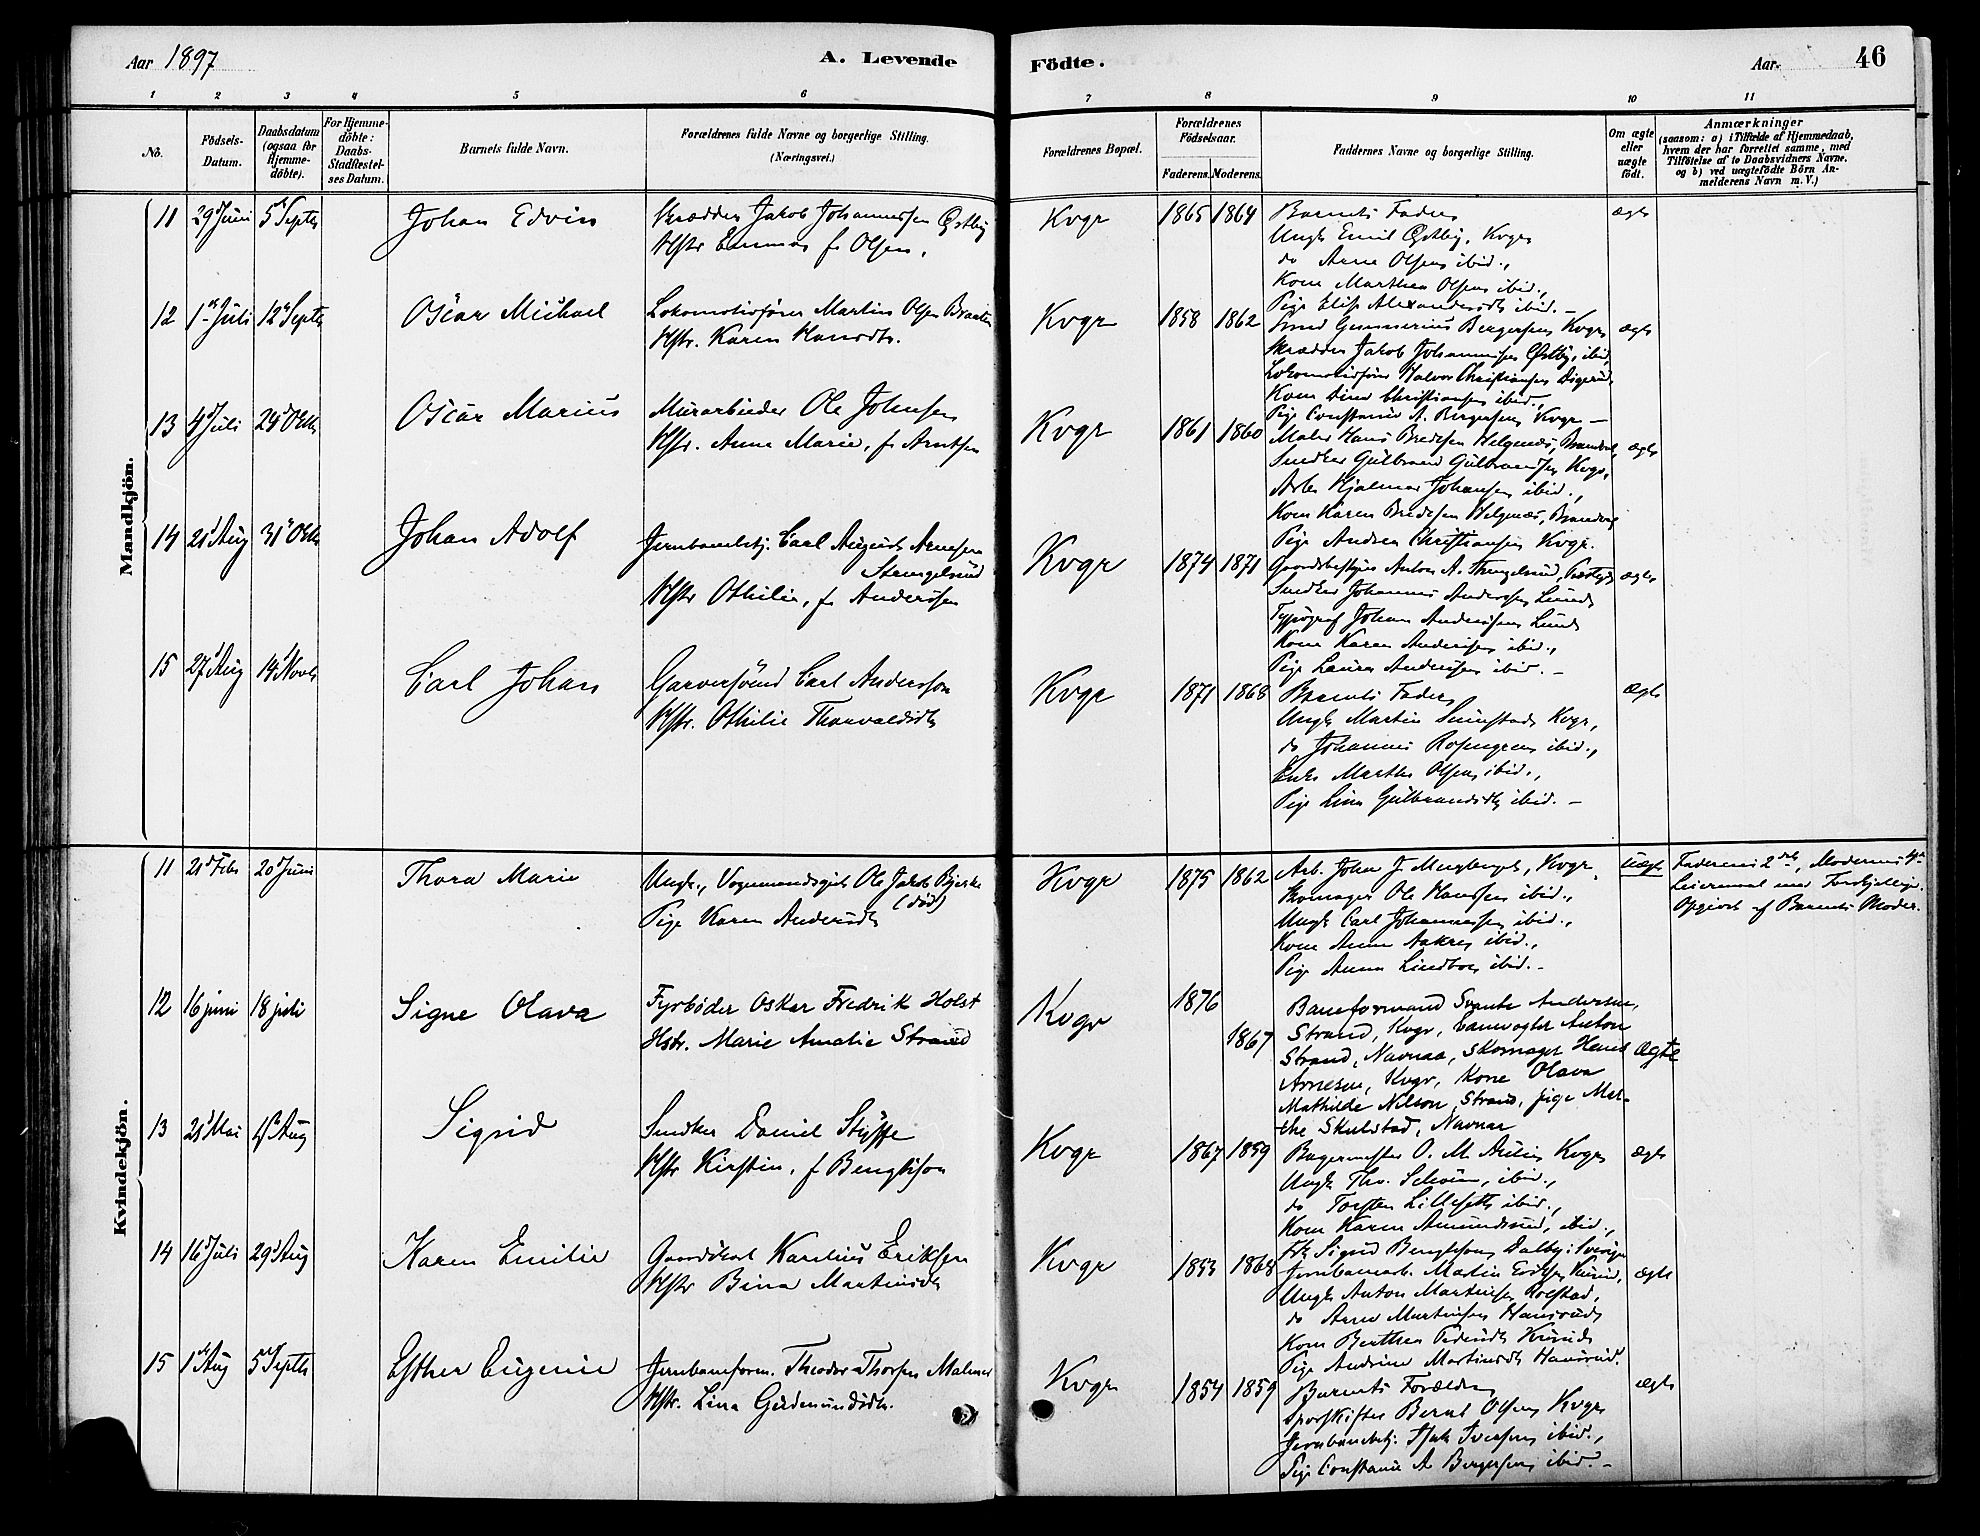 Aar 1897
A. Levende
Födte.
Aar.
46
1 2 3 4 5 6 7 8 9 10 11
No.
Födsels-
Datum.
Daabsdatum
(ogsaa for
Hjemme-
döbte).
For Hjemme-
döbte:
Daabs-
Stadfestel-
ses Datum.
Barnets fulde Navn.
Forældrenes fulde Navne og borgerlige Stilling.
(Næringsvei.)
Forældrenes Bopæl.
Forældrenes
Födselsaar.
Faderens. Moderens.
Faddernes Navne og borgerlige Stilling.
Om ægte
eller
uægte
födt.
Anmærkninger
(saasom: a) i Tilfælde af Hjemmedaab,
hvem der har forrettet samme, med
Tilföielse af to Daabsvidners Navne.
og b) ved uægtefödte Börn An-
melderens Navn m. V.)
Mandkjön.
11 29 Juni 5 Septb Johan Edvin
Skrædder Jakob Johannessen Østby
Hstr Emma f. Olsen.
Kvgr 1865 1864 ægte
Barnets Fader
Ungk Emil Østby, Kvgr
do Arne Olsen ibid.,
Kone Marthea Olsen ibid.,
Pige Elise Alexandersdt ibid. -
12 1 Juli 12 Septb Oscar Michael
Lokomotivfører Martin Olsen Braaten
Hstr. Karen Hansdtr.
Kvgr 1858 1862 ægte
Smed Gunnerius Bergersen Kvgr
Skrædder Jakob Johannesen Østby, ibid,
Lokomotivfører Halvor Christiansen Digerud,
Kone Christiansen ibid.,
Pige Constance A. Bergersen Kvgr -
13 4 Juli 24 Oktb Oscar Marius
Murarbeider Ole Johnsen
Hstr. Anna Marie, f. Arntsen
Kvgr 1861 1860 ægte
Maler Hans Bredesen Helgenæs, Brandval,
Snedker Gulbrand Gulbrandsen Kvgr,
Arb Hjalmar Johansen ibid.,
Kone Karen Bredesen Helgenæs, Brandval
Pige Andrea Christiansen Kvgr.
14 21 Aug 31 Oktb Johan Adolf
Jernbanebetj. Carl August Arnesen
Strengelsrud
Hstr Othilie, f. Andersen
Kvgr 1874 1871 ægte
Gaardsbestyrer Anton A. Strengelsrud,
Snedker Johannes Andersen Lund
Typograf Johan Andersen Lund
Kone Karen Andersen ibid.,
Pige Laura Andersen ibid. -
15 27 Aug 14 Novb Carl Johan
Garversvend Carl Andersson
Hstr. Othilie Thorvaldsdt
Kvgr 1871 1868 ægte
Barnets Fader
Ungk Martin Kvgr,
do Johannes Rosengren ibid.,
Enke Marthe Olsen ibid.,
Pige Lina Gulbrandsdt ibid. -
Kvindekjön.
11 21 Feb 20 Juni Thora Marie
Ungk., Vognmandsgut Ole Jakob Bjerke
(død)
Pige Karen Andersdt
Kvgr 1875 1862 uægte
Arb. John J. Myrberget, Kvgr,
Skomager Ole Hanssen ibid.,
Ungk Carl Johannessen ibid.,
Kone Anne Aakre ibid.,
Pige Anna Lindboe ibid. -
Faderens 2det, Moderens 4de
Leiermaal med Forskjellige.
Opgivet af Barnets Moder.
12 16 juni 18 juli Signe Olava
Fyrbøder Oskar Fredrik Holst
Hstr. Marie Amalie Strand
Kvgr 1876 1867 Ægte
Baneformand Svante Andersen,
Strand, Kvgr, Banevogter Anton
Strand, Navnaa, Skomager Hans
Arnesen, Kvgr, Kone Olava
Mathilde Nilson, Strand, pige Mar-
the Skulstad, Navnaa
13 21 Mai 1 Aug Sigrid
Snedker Daniel Styffe
Hstr Kirstin, f Bengtsson
Kvgr 1867 1859 ægte
Bagermester O. M. Kvgr
Ungk Thv. ibid.,
do Torsten Lilleseth ibid.,
Kone Karen Amundsrud, ibid.,
Frk Sigrid Bengtsson, Dalby i Sverige
14 16 Juli 29 Aug Karen Emilie
Karelius Eriksen
Hstr Bina Martinsdt
Kvgr 1853 1868 ægte
Jernbanearb. Martin Eriksen
Ungk Anton Martinsen Rolstad,
do Arne Martinsen Hansrud
Kone Berthea Pedersdt
Pige Andrine Martinsdt Hansrud.
15 1 Aug 5 Septb Esther Eugenie
Jernbaneform. Theodor Thorsen Malmer
Hstr. Lina Gudmundsdt.
Kvgr 1854 1859 ægte
Barnets Forældre
Sporskifter Bernt Olsen Kvgr
Jernbanebetj. Isak Iversen ibid.,
Pige Constance A Bergersen ibid. -